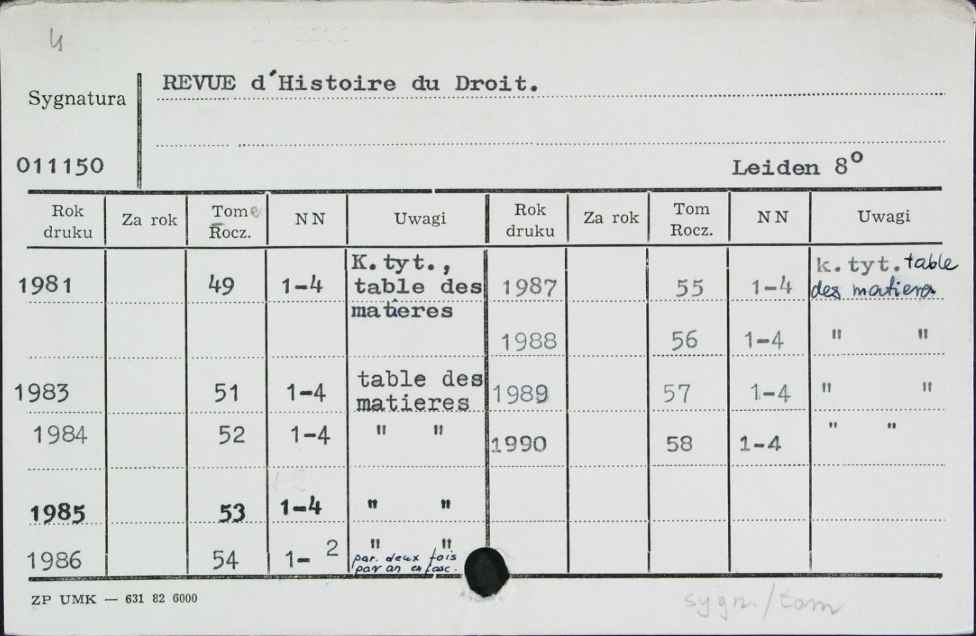 4
REVUE d'Histoire du Droit.
Sygnatura
011150
Leiden 8°
Rok druku Za rok Tome Rocz. NN Uwagi Rok druku Za rok Tom Rocz. NN Uwagi
1981 49 1-4 K.tyt., table des matieres 1987 55 1-4 k.tyt. table des matieres
1988 56 1-4 " "
1983 51 1-4 table des matieres 1989 57 1-4 " "
1984 52 1-4 " " 1990 58 1-4 " "
1985 53 1-4 " "
1986 54 1-2 " " par. deux fois par an en fasc.
ZP UMK — 631 82 6000
sygn./tom